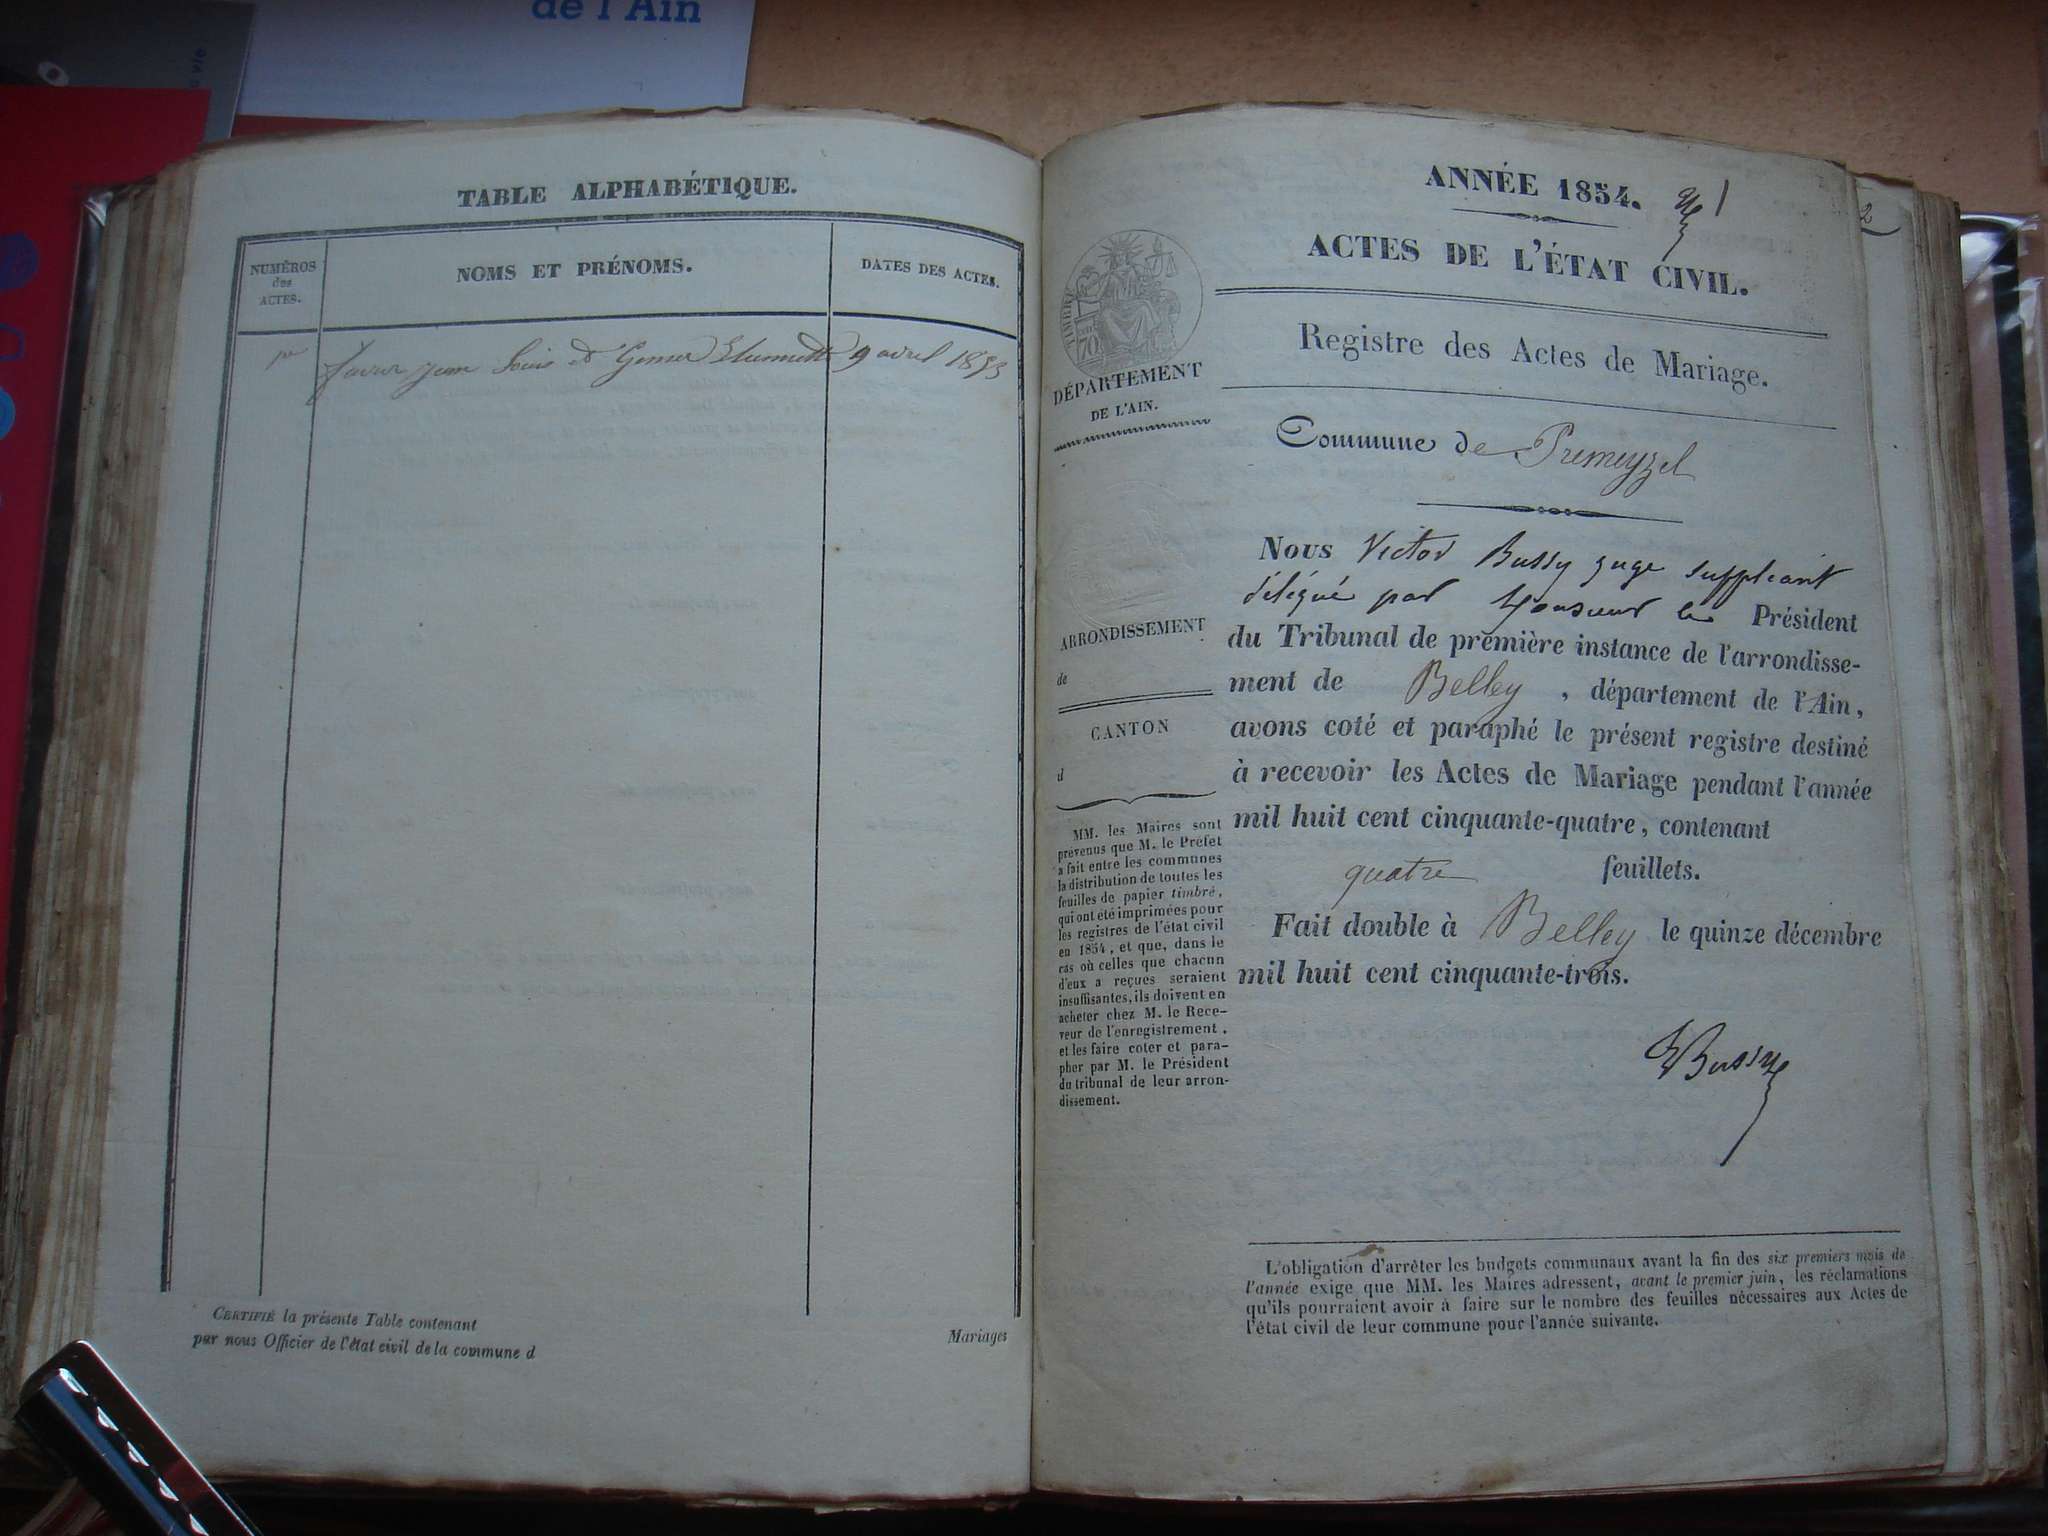 de l'Ain
TABLE ALPHABÉTIQUE.
NUMÉROS
des
ACTES.
NOMS ET PRÉNOMS.
DATES DES ACTES.
1er
jean Louis et 9 avril 1853
CERTIFIÉ la présente Table contenant
par nous Officier de l'état civil de la commune d
Mariages
ANNÉE 1854.
1
2
ACTES DE L'ÉTAT CIVIL.
Registre des Actes de Mariage.
TIMBRE
70
DÉPARTEMENT
DE L'AIN.
Commune de Premeyzel
ARRONDISSEMENT
de
CANTON
d
MM. les Maires sont
prévenus que M. le Préfet
a fait entre les communes
la distribution de toutes les
feuilles de papier timbré,
qui ont été imprimées pour
les registres de l'état civil
en 1854, et que, dans le
cas où celles que chacun
d'eux a reçues seraient
insuffisantes, ils doivent en
acheter chez M. le Rece-
veur de l'enregistrement,
et les faire coter et para-
pher par M. le Président
du tribunal de leur arron-
dissement.
Nous Victor Bussy juge suppléant
délégué par Monsieur le Président
du Tribunal de première instance de l'arrondisse-
ment de Belley, département de l'Ain,
avons coté et paraphé le présent registre destiné
à recevoir les Actes de Mariage pendant l'année
mil huit cent cinquante-quatre, contenant
quatre feuillets.
Fait double à Belley le quinze décembre
mil huit cent cinquante-trois.
VBussy
L'obligation d'arrêter les budgets communaux avant la fin des six premiers mois de
l'année exige que MM. les Maires adressent, avant le premier juin, les réclamations
qu'ils pourraient avoir à faire sur le nombre des feuilles nécessaires aux Actes de
l'état civil de leur commune pour l'année suivante.